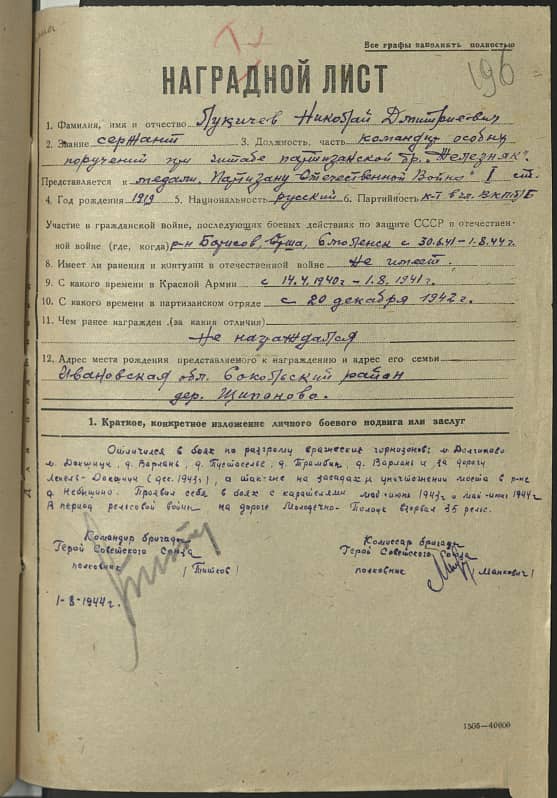 Все графы заполнять полностью
196
НАГРАДНОЙ ЛИСТ
1. Фамилия, имя и отчество Лукичев Николай Дмитриевич
2. Звание сержант 3. Должность, часть командир особых
поручений при штабе партизанской бр. „Железняк“
Представляется к медали „Партизану Отечественной Войны“ I ст.
4. Год рождения 1919 5. Национальность русский 6. Партийность к-т в чл. ВКП/б
Участие в гражданской войне, последующих боевых действиях по защите СССР и отечествен-
ной войне (где, когда) р-н Борисов, Орша, Смоленск с 30.6.41 - 1.8.44 г.
8. Имеет ли ранения и контузии в отечественной войне не имеет.
9. С какого времени в Красной Армии с 14.4.1940г - 1.8.1941г.
10. С какого времени в партизанском отряде с 20 декабря 1942г.
11. Чем ранее награжден (за какия отличия)
Не награждался
12. Адрес места рождения представляемого к награждению и адрес его семьи
Ивановская обл. Сокольский район
дер.
1. Краткое, конкретное изложение личного боевого подвига или заслуг
Отличился в боях по разгрому вражеских гарнизонов: м. Долгиново
м. Докшицы, д. Варлань, д. Пустоселье, д. д. Варлань и за дорогу
Лепель-Докшицы (дес. 1943г), а так-же на засадах и уничтожении моста в р-не
д. Небышино. Проявил себя в боях с карателями май-июнь 1943г и май-июнь 1944г
В период рельсовой войны на дороге Молодечно-Полоцк взорвал 35 рельс.
Командир бригады
Герой Советского Союза
полковник / Титков /
Комиссар бригады
Герой Советского Союза
полковник / Манкович /
1-8-1944г.
1506—40000